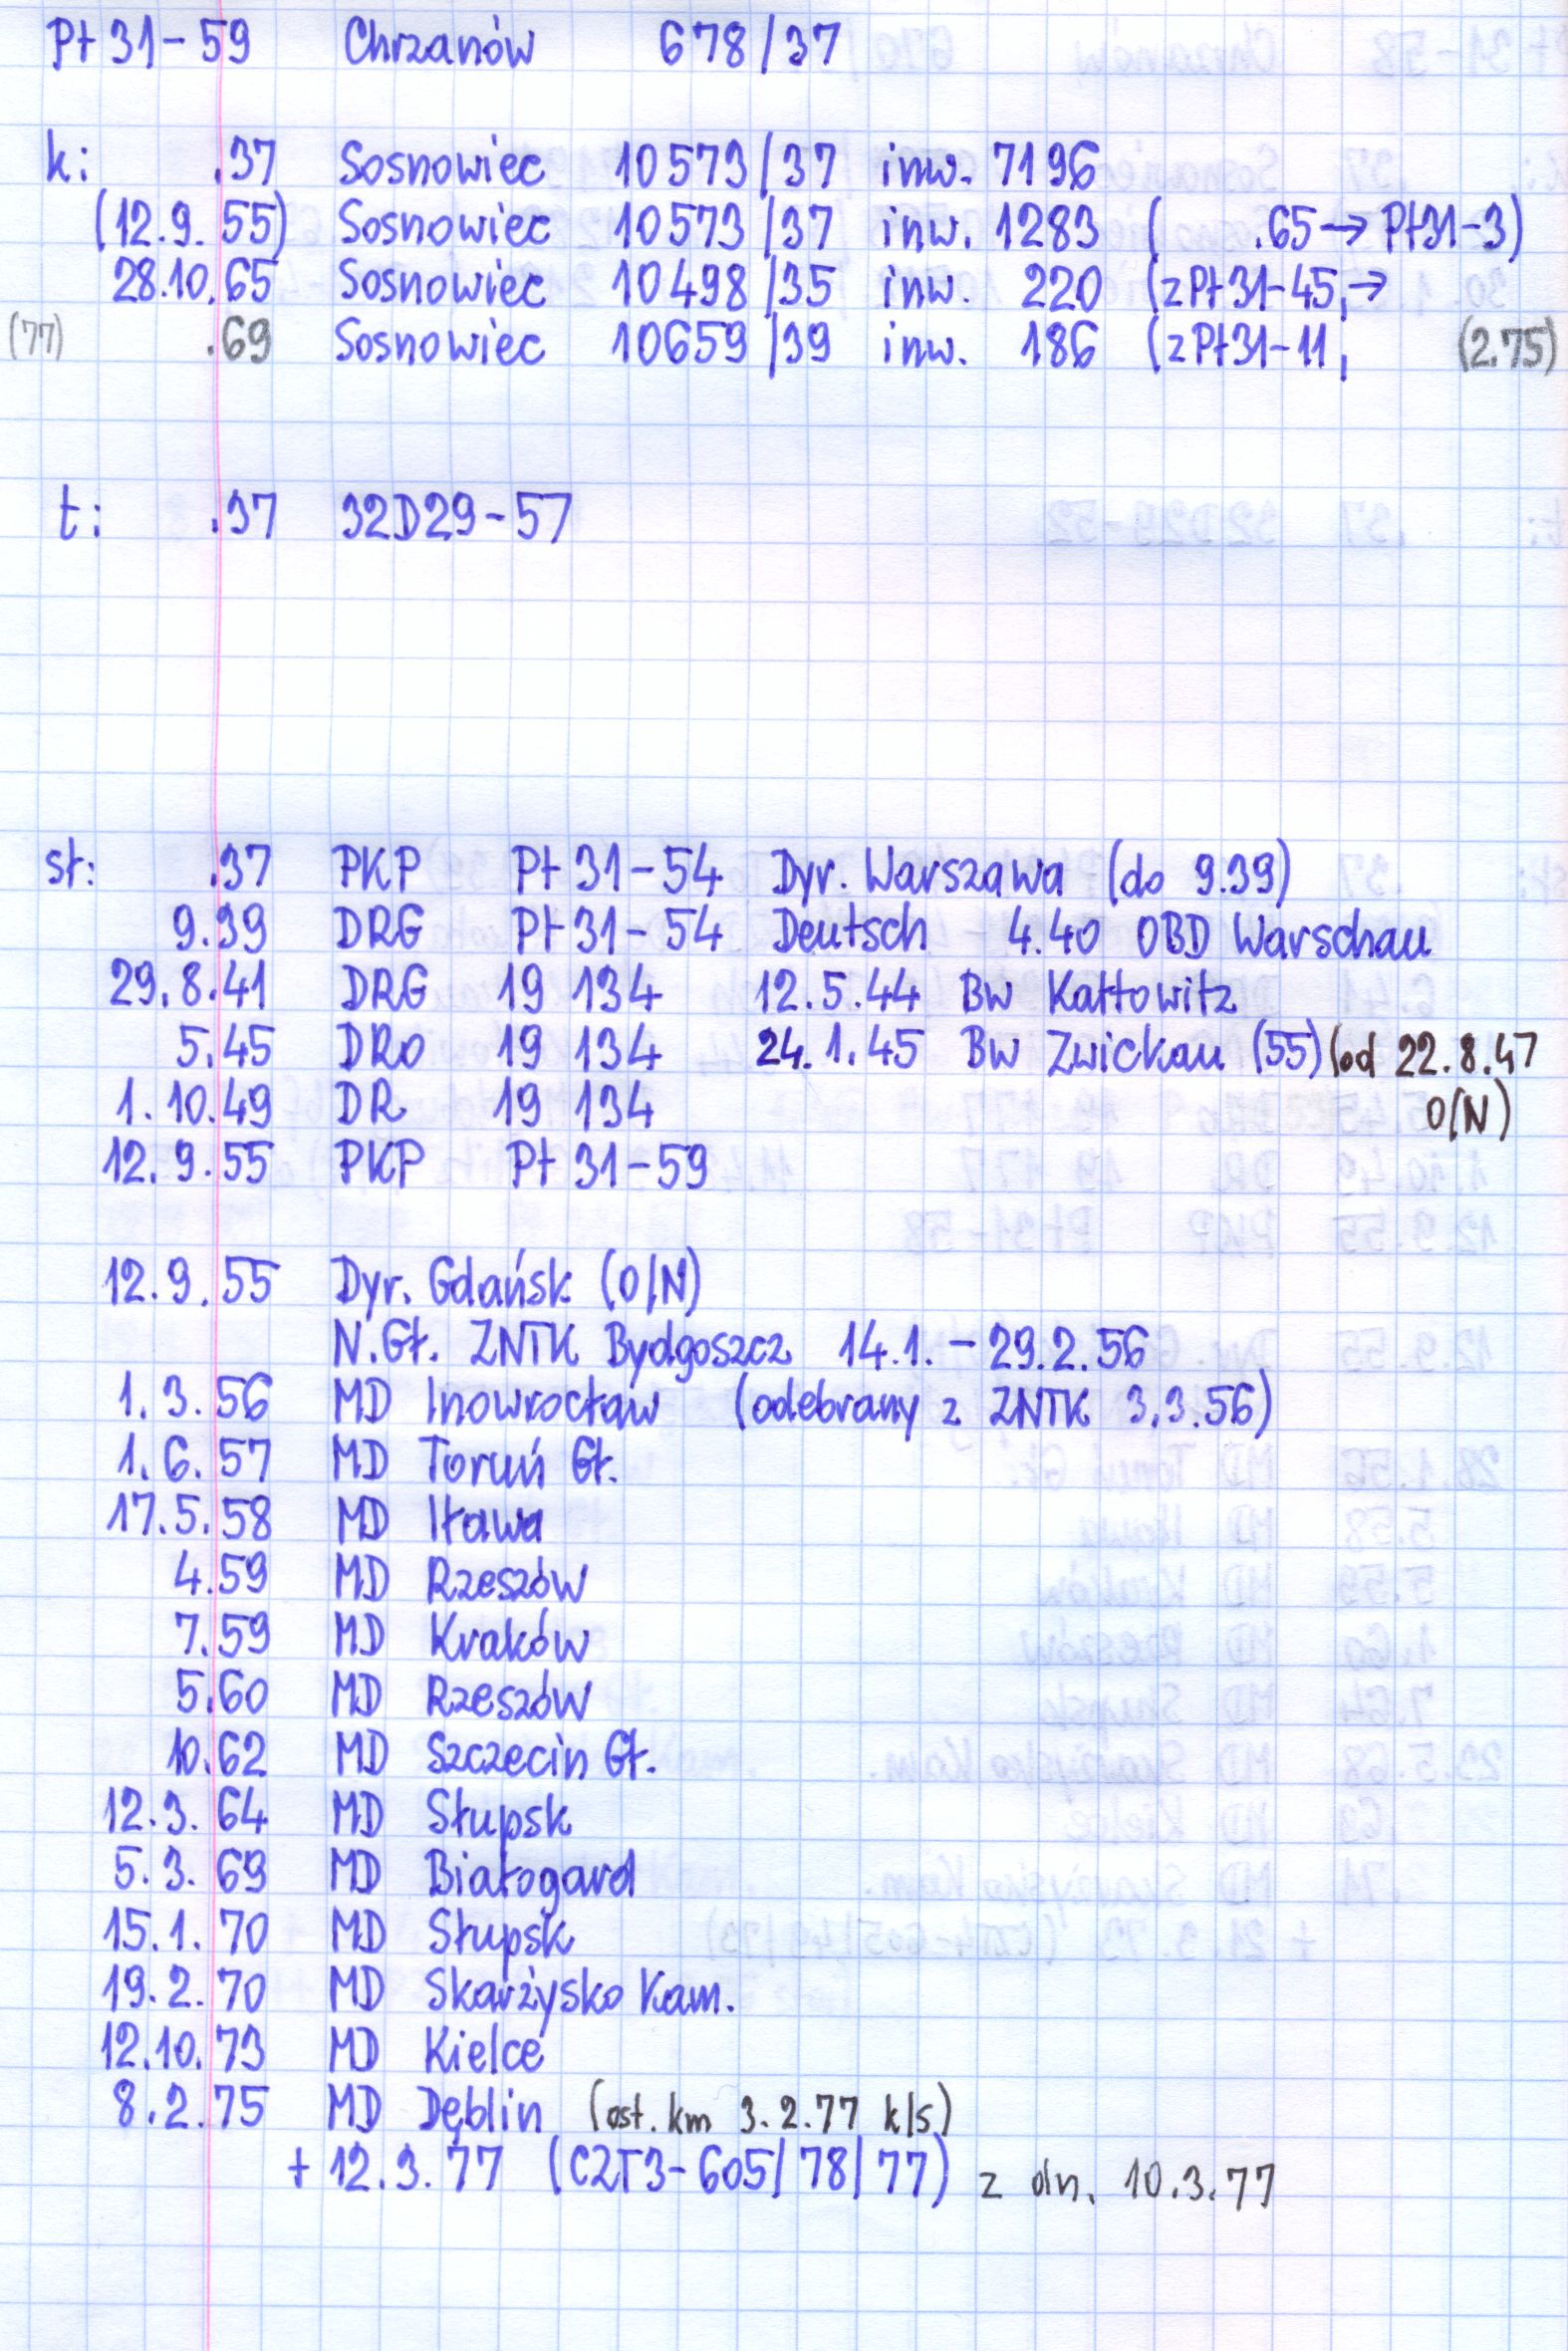 Pt 31-59 Chrzanów 678/37
k: .37 Sosnowiec 10573/37 inw. 7196
(12.9.55) Sosnowiec 10573/37 inw. 1283 ( .65→Pt31-3)
28.10.65 Sosnowiec 10498/35 inw. 220 (z Pt31-45,→
(77) .69 Sosnowiec 10659/39 inw. 186 (z Pt31-11, (2.75)
t: .37 32D29-57
sł: .37 PKP Pt 31-54 Dyr. Warszawa (do 9.39)
9.39 DRG Pt 31-54 Deutsch 4.40 OBD Warschau
29.8.41 DRG 19 134 12.5.44 BW Kattowitz
5.45 DRo 19 134 24.1.45 BW Zwickau (55) (od 22.8.47
1.10.49 DR 19 134 O/N)
12.9.55 PKP Pt 31-59
12.9.55 Dyr. Gdańsk (O/N)
N.Gł. ZNTK Bydgoszcz 14.1.-29.2.56
1.3.56 MD Inowrocław (odebrany z ZNTK 3.3.56)
1.6.57 MD Toruń Gł.
17.5.58 MD Iława
4.59 MD Rzeszów
7.59 MD Kraków
5.60 MD Rzeszów
10.62 MD Szczecin Gł.
12.3.64 MD Słupsk
5.3.69 MD Białogard
15.1.70 MD Słupsk
19.2.70 MD Skarżysko Kam.
12.10.73 MD Kielce
8.2.75 MD Dęblin (ost. km 3.2.77 k/s)
+ 12.3.77 (CZT3-605/78/77) z dn. 10.3.77